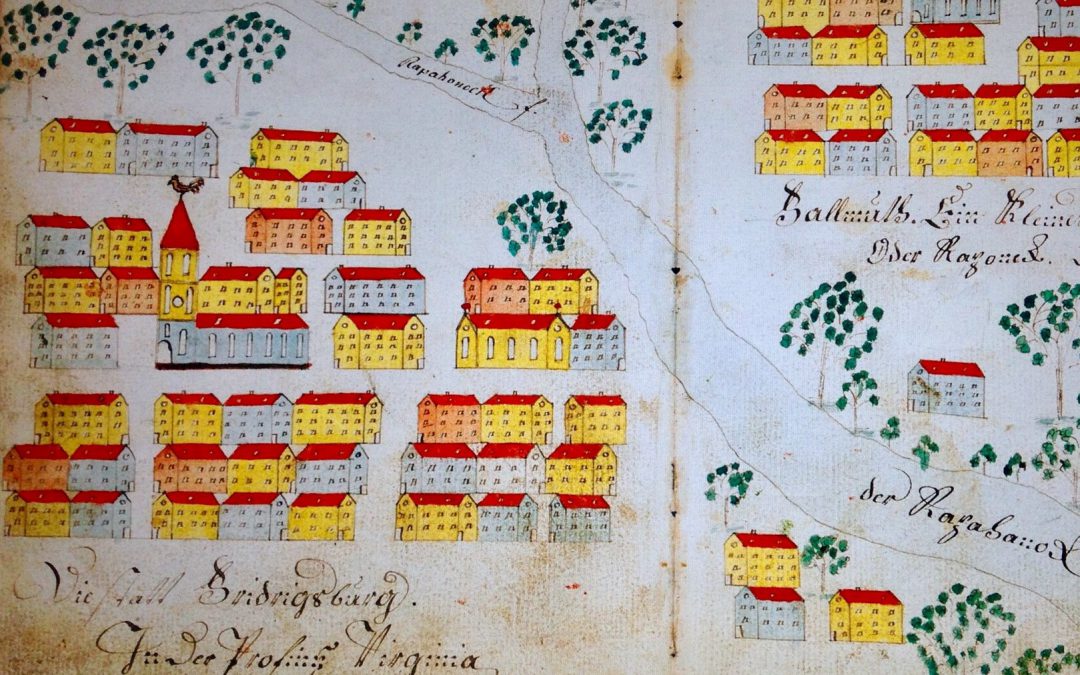 Rapahoneck f
Ballmuth. Ein Kleine
Oder Raponeck.
der Rapahanock
Die statt Fridrigsburg.
In der Profintz Virginia